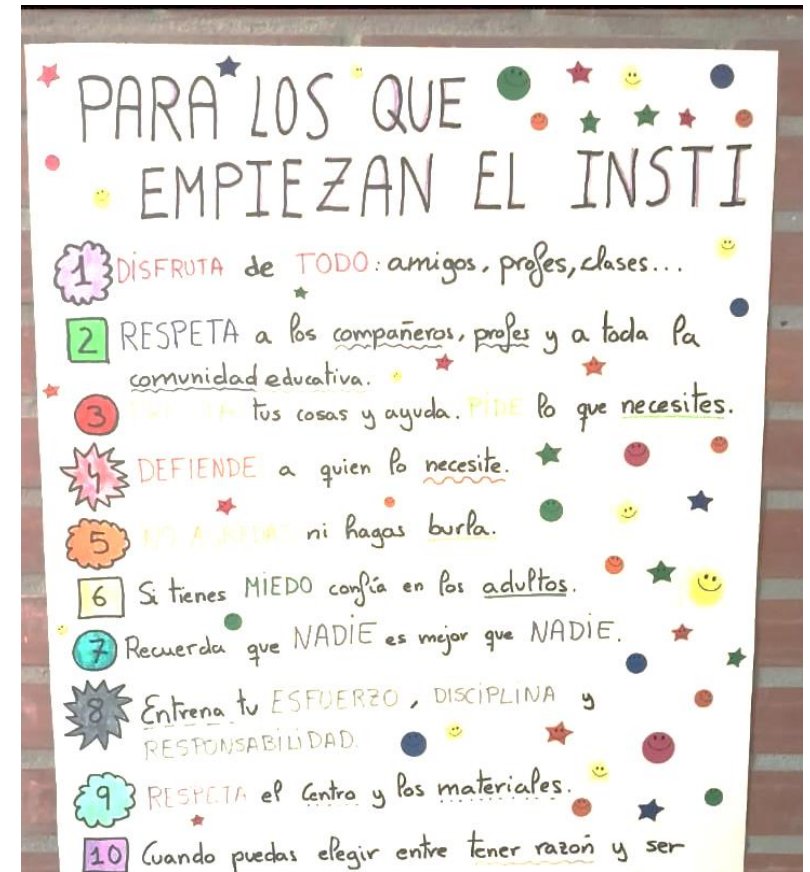 PARA LOS QUE
EMPIEZAN EL INSTI
1 DISFRUTA de TODO: amigos, profes, clases...
2 RESPETA a los compañeros, profes y a toda la
comunidad educativa.
3 tus cosas y ayuda. PIDE lo que necesites.
4 DEFIENDE a quien lo necesite.
5 ni hagas burla.
6 Si tienes MIEDO confía en los adultos.
7 Recuerda que NADIE es mejor que NADIE.
8 Entrena tu ESFUERZO, DISCIPLINA y
RESPONSABILIDAD.
9 RESPETA el Centro y los materiales.
10 Cuando puedas elegir entre tener razón y ser